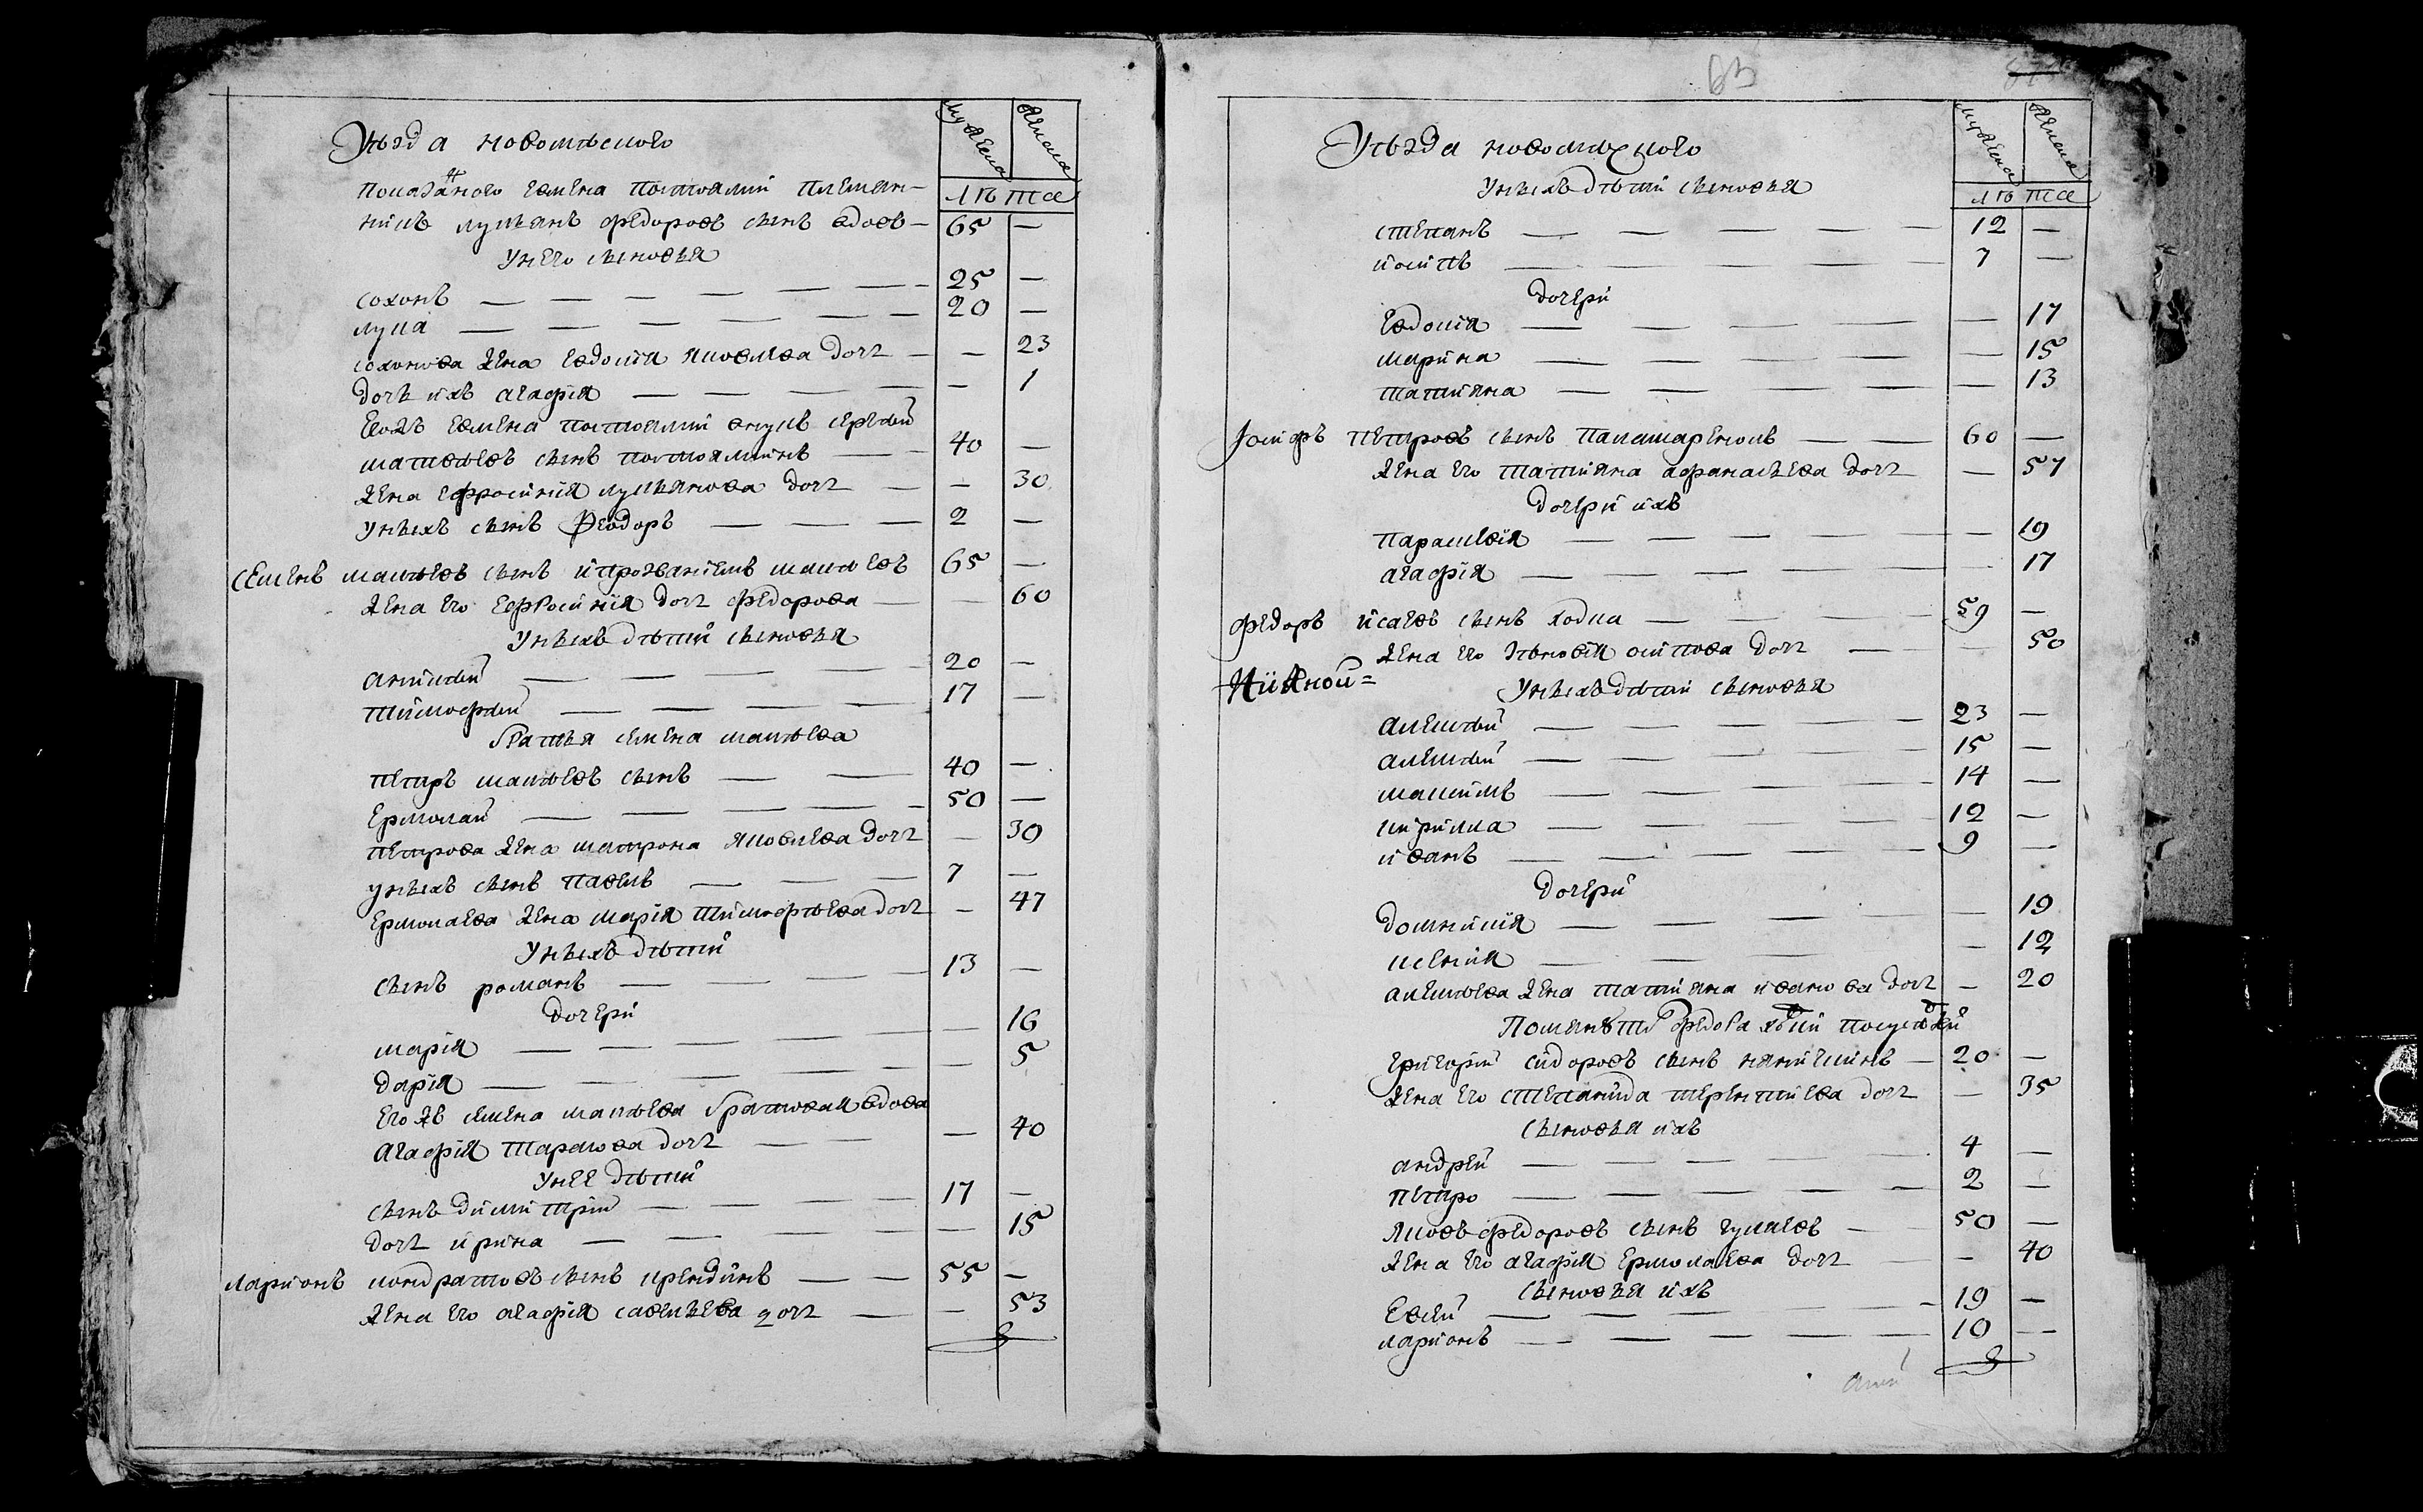 Уѣзда новомѣского
мужеска женска
лѣта
показанного евмена постоялии племян-
никъ лукьянъ федоровъ сынъ вдовъ — 65 —
У него сыновья
сохонъ — 25 —
лука — 20 —
сохонова жена евдокия яковлева дочь — — 23
дочь ихъ агафия — — 1
Евожъ евмена постоялии внукъ сергѣй
матвѣевъ сынъ постоялинъ — 40 —
жена ефросиния лукьянова дочь — — 30
У ныхъ сынъ Феодоръ — 2 —
Семенъ макѣевъ сынъ ипрозваниемъ макѣевъ 65 —
жена его ефросиния дочь федорова — — 60
У ныхъ дѣти сыновья
аникѣй — 20 —
тимофѣй — 17 —
братья семена макѣева
петръ макѣевъ сынъ — 40 —
Ермолай — 50 —
петрова жена матрона яковлева дочь — 30
у ныхъ сынъ павелъ — 7 —
Ермолаева жена мария тимофѣева дочь — 47
У ныхъ дѣти
сынъ романъ — 13 —
дочери
мария — — 16
дария — — 5
его жъ семена макѣева братовая вдова
агафия тарасова дочь — — 40
У нее дѣти
сынъ димитрии — 17 —
дочь ирина — — 15
ларионъ кондратовъ сынъ крендинъ — 55 —
жена его агафия савельева дочь — — 53
63
Уѣзда новомѣского
мужеска женска
лѣта
У ныхъ дѣти сыновья
степанъ — 12 —
иосипъ — 7 —
дочери
Евдокия — — 17
марина — — 15
татияна — — 13
Иосифъ петровъ сынъ паламаренокъ — 60 —
жена его татияна афанасьева дочь — 57
дочери ихъ
парасковия — — 19
агафия — — 17
федоръ исаевъ сынъ ходка — 59 —
жена его зѣновия осипова дочь — — 50
У ныхъ дѣти сыновья
алексѣй — 23 —
алексѣй — 15 —
максимъ — 14 —
кирилла — 12 —
иванъ — 9 —
дочери
домникия — — 19
ксения — — 12
алексѣева жена татияна иванова дочь — 20
григории сидоровъ сынъ — 20 —
жена его степанида терентиева дочь — 35
сыновья ихъ
андрей — 4 —
петро — 2 —
яковъ федоровъ сынъ чумаевъ — 50 —
жена его агафия ермолаева дочь — — 40
сыновья ихъ
Евсей — 19 —
ларионъ — 10 —